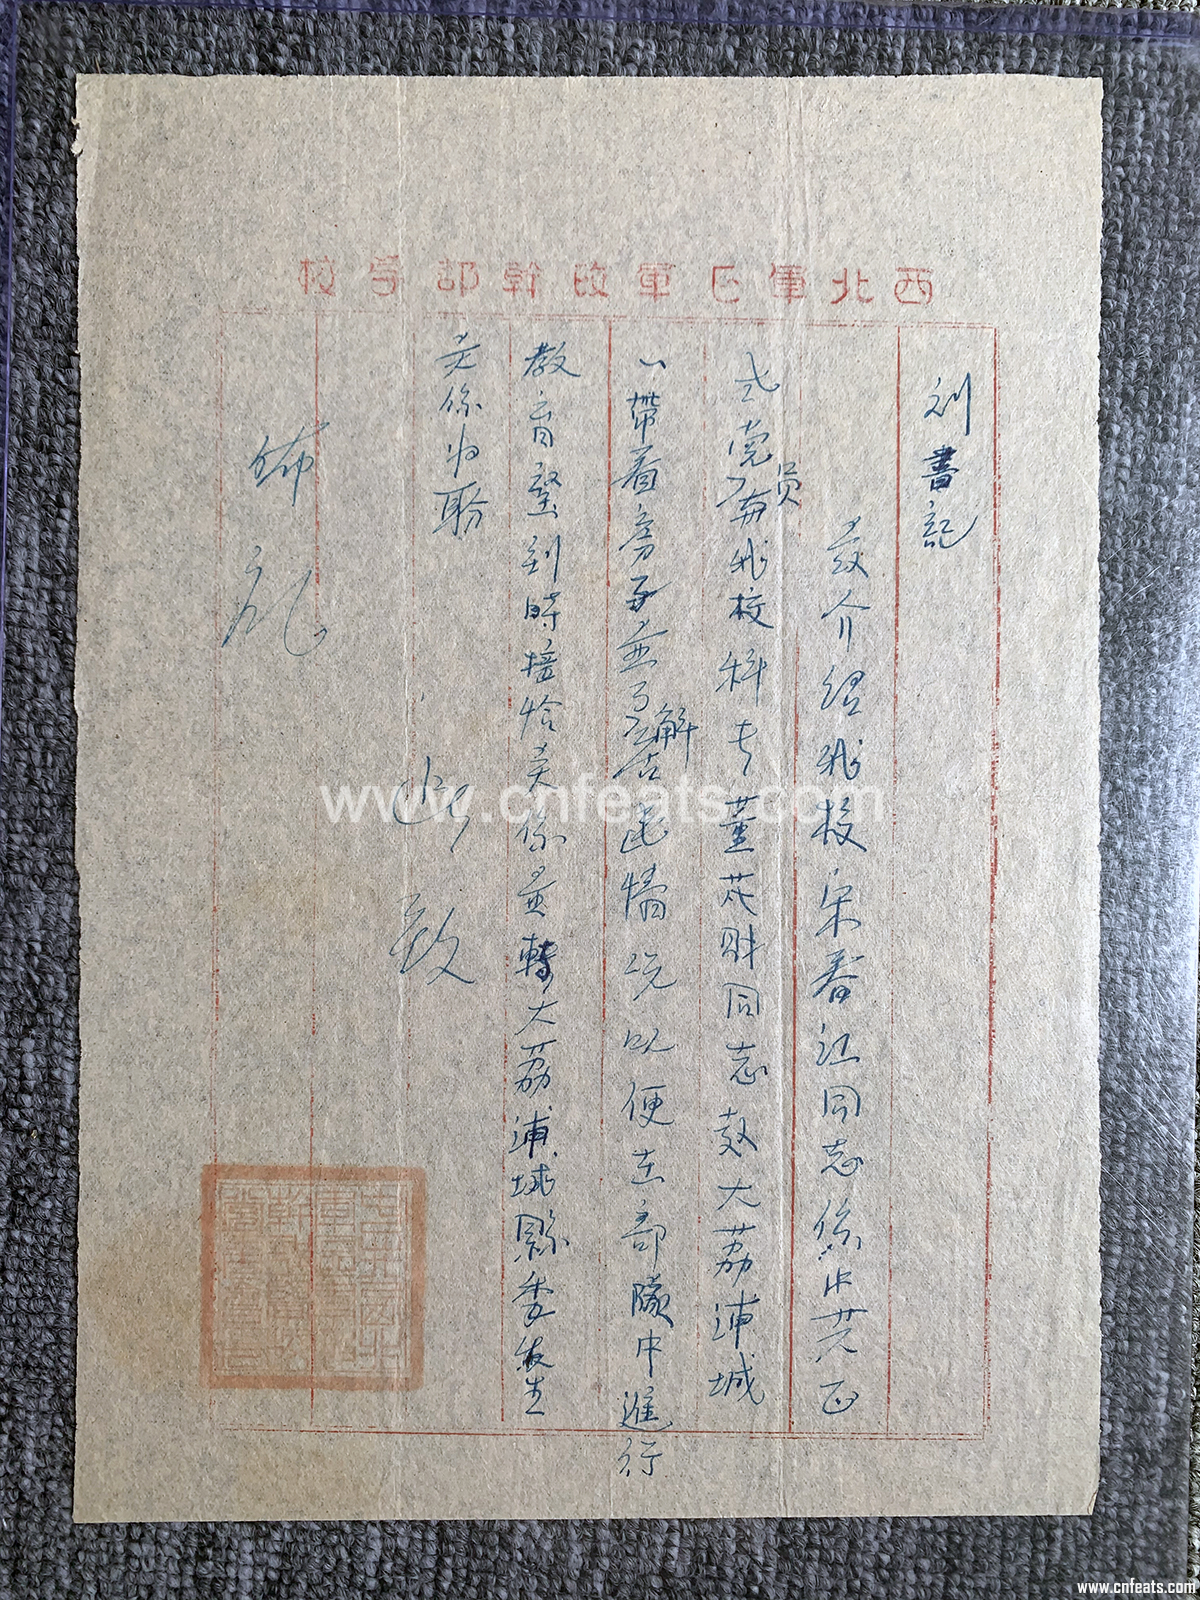 西北軍區軍政幹部学校
刘書記
兹介绍我校宋春江同志係中共正
式党員 我校科长董茂财同志赴大荔浦城
一带看房子並了解 匪情况以便在部隊中進行
教育望到時接恰关係并轉大荔蒲城縣委发生
关係为盼
此致
佈礼
www.cnfeats.com
www.cnfeats.com